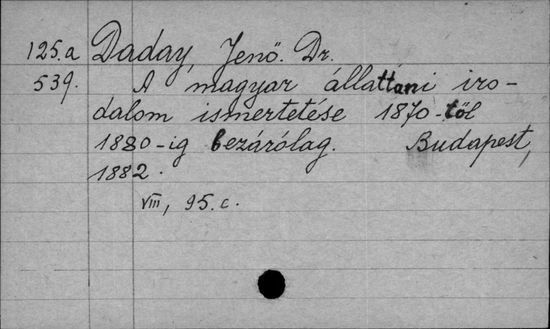 125.a Daday, Jenő. Dr.
539. A magyar állattani iro-
dalom ismertetése 1870-től
1880-ig bezárólag. Budapest,
1882.
VIII, 95. c.